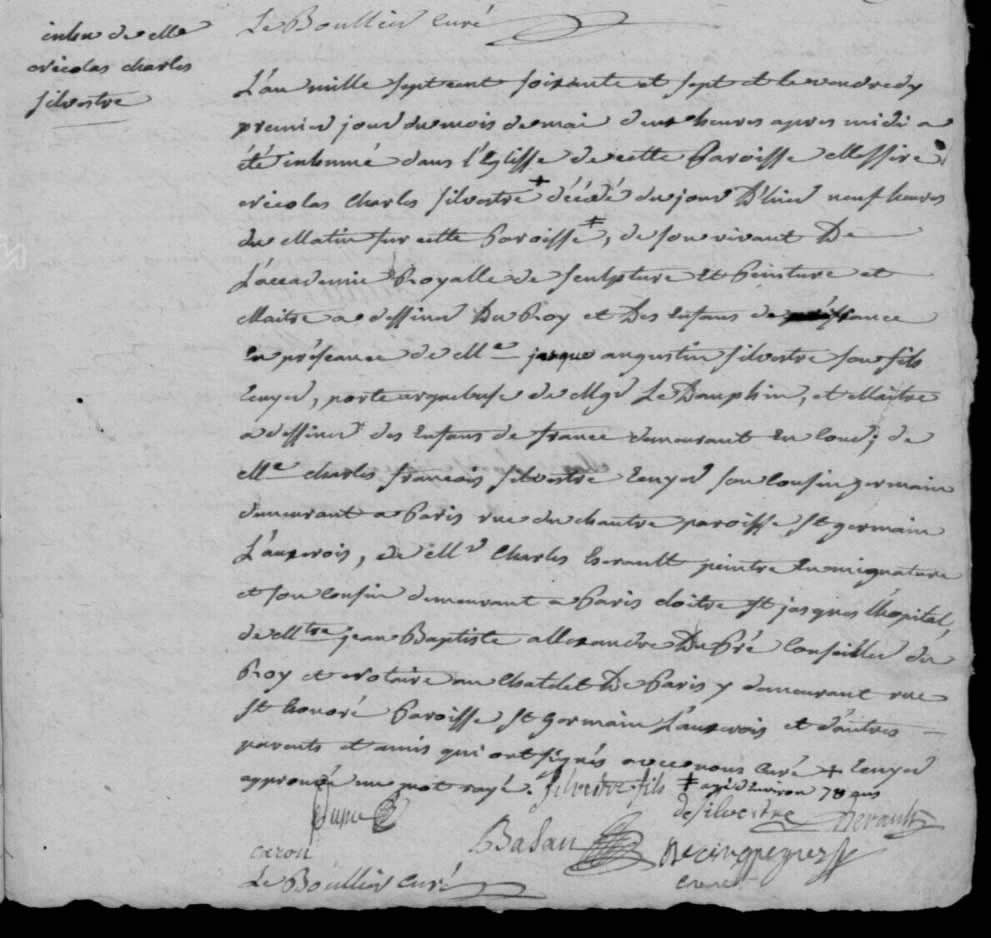 Le Boullier curé
inhu de Me
Nicolas charles
silvestre
L'an mille sept cent soixante et sept et le vendredy
premier jour du mois de mai deux heures apres midi a
été inhumé dans l'Eglisse de cette Paroisse Messire
Nicolas Charles silvestre + décédé du jour D'hier neuf heures
du Matin sur cette Paroisse ‡, de son vivant De
L'accademie Royalle de sculpture Et Peinture et
Maitre a dessiner Du Roy et Des Enfans de france
En préseance de Me jacque augustin silvestre son fils
Ecuyer, porte arquebuse de Mgr Le Dauphin, et Maitre
a dessiner des Enfans de france demeurant En cour; de
Me charles françois silvestre Ecuyer son cousin germain
demeurant a Paris rue du chantre paroisse st germain
L'auxerois, de Mr Charles herault peintre En mignature
et son cousin demeurant a Paris cloitre st jacques l'hopital,
de Mtre jean Baptiste allexandre Dupré Conseiller du
Roy et Notaire au Chatelet De Paris y demeurant rue
st honoré Paroisse st Germain L'auxerois et d'autres
parents et amis qui ont signés avec nous Curé + Ecuyer
approuvé un mot rayé. Silvestre fils ‡ agé d'Environ 78 ans
Dupré de silvestre herault
caron Badan
Le Boullier curé